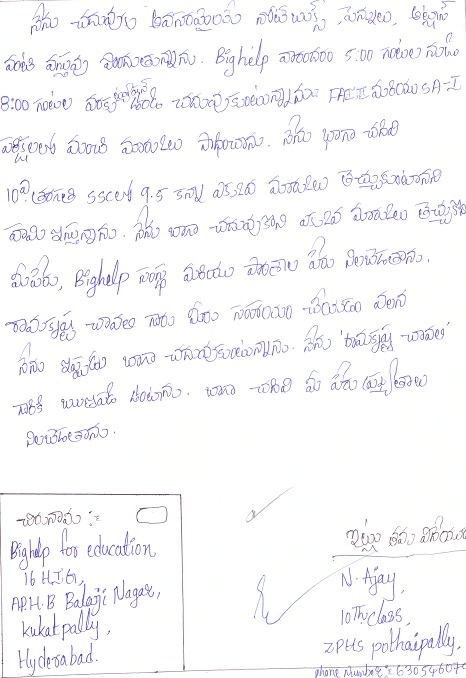 నేను చదువుకు అవసరమైనటి నోట్ బుక్స్, పెన్నులు, అట్లాస్
వంటి వస్తువు పొందుతున్నాను. Bighelp వారందరం 5.00 గంటల నుండి
8:00 గంటల వరకు ఉండి చదువుకుంటున్నాము FA-II మరియు SA-I
పరీక్షలలో మంచి మార్కులు సాధించాను. నేను బాగా చదివి
10వ తరగతి SSCలో 9.5 కన్నా ఎక్కువ మార్కులు తెచ్చుకుంటానని
హామి ఇస్తున్నాను. నేను బాగా చదువుకొని ఎక్కువ మార్కులు తెచ్చుకొని
మీపేరు, Bighelp సంస్థ మరియు పాఠశాల పేరు నిలబెడతాను.
రామకృష్ణ చావలి గారు మీరు సహాయం చేయడం వలన
నేను ఇప్పుడు బాగా చదువుకుంటున్నాను. నేను 'రామకృష్ణ చావలి'
గారికి ఋణపడి ఉంటాను. బాగా చదివి మీ పేరు ప్రఖ్యాతులు
నిలబెడతాను.
చిరునామా :-
Bighelp for education,
16 H.I.G,
A.P.H.B Balaji Nagar,
kukatpally,
Hyderabad.
ఇట్లు తమ విధేయుడు
N. Ajay,
10Th class,
ZPHS pothaipally.
phone Number :- 63054607